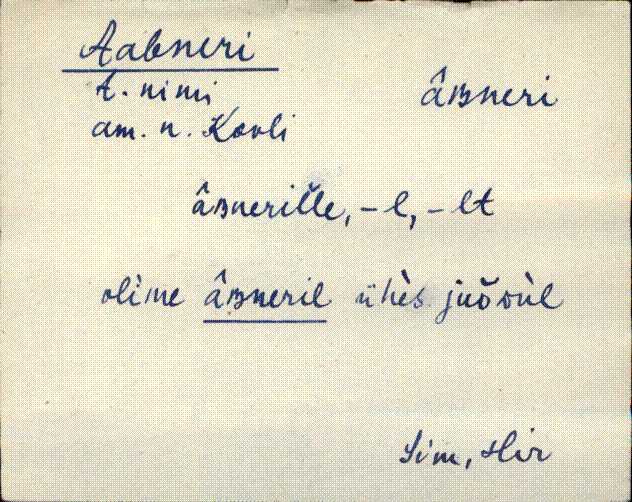 Aabneri
t. nimi
am. n. Kavli
âʙneri
âʙneriĺle, – l, – lt
olime âʙneril ühès juŏvùl
Sim, Hir